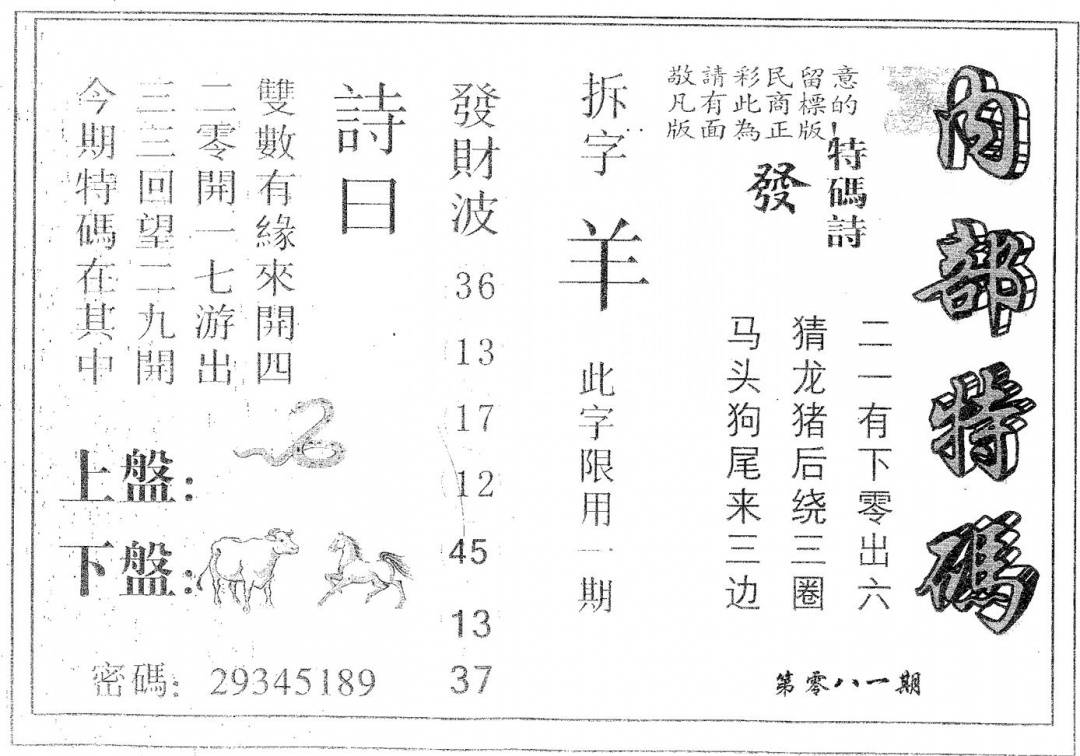 内部特碼
第零八一期
敬請彩民留意
凡有此商標的
版面為正版
特碼詩
發
二一有下零出六
猜龙猪后绕三圈
马头狗尾来三边
拆字
羊
此字限用一期
發財波
36
13
17
12
45
13
37
詩曰
雙數有緣來開四
二零開一七游出
三三回望二九開
今期特碼在其中
上盤:
下盤:
密碼: 29345189